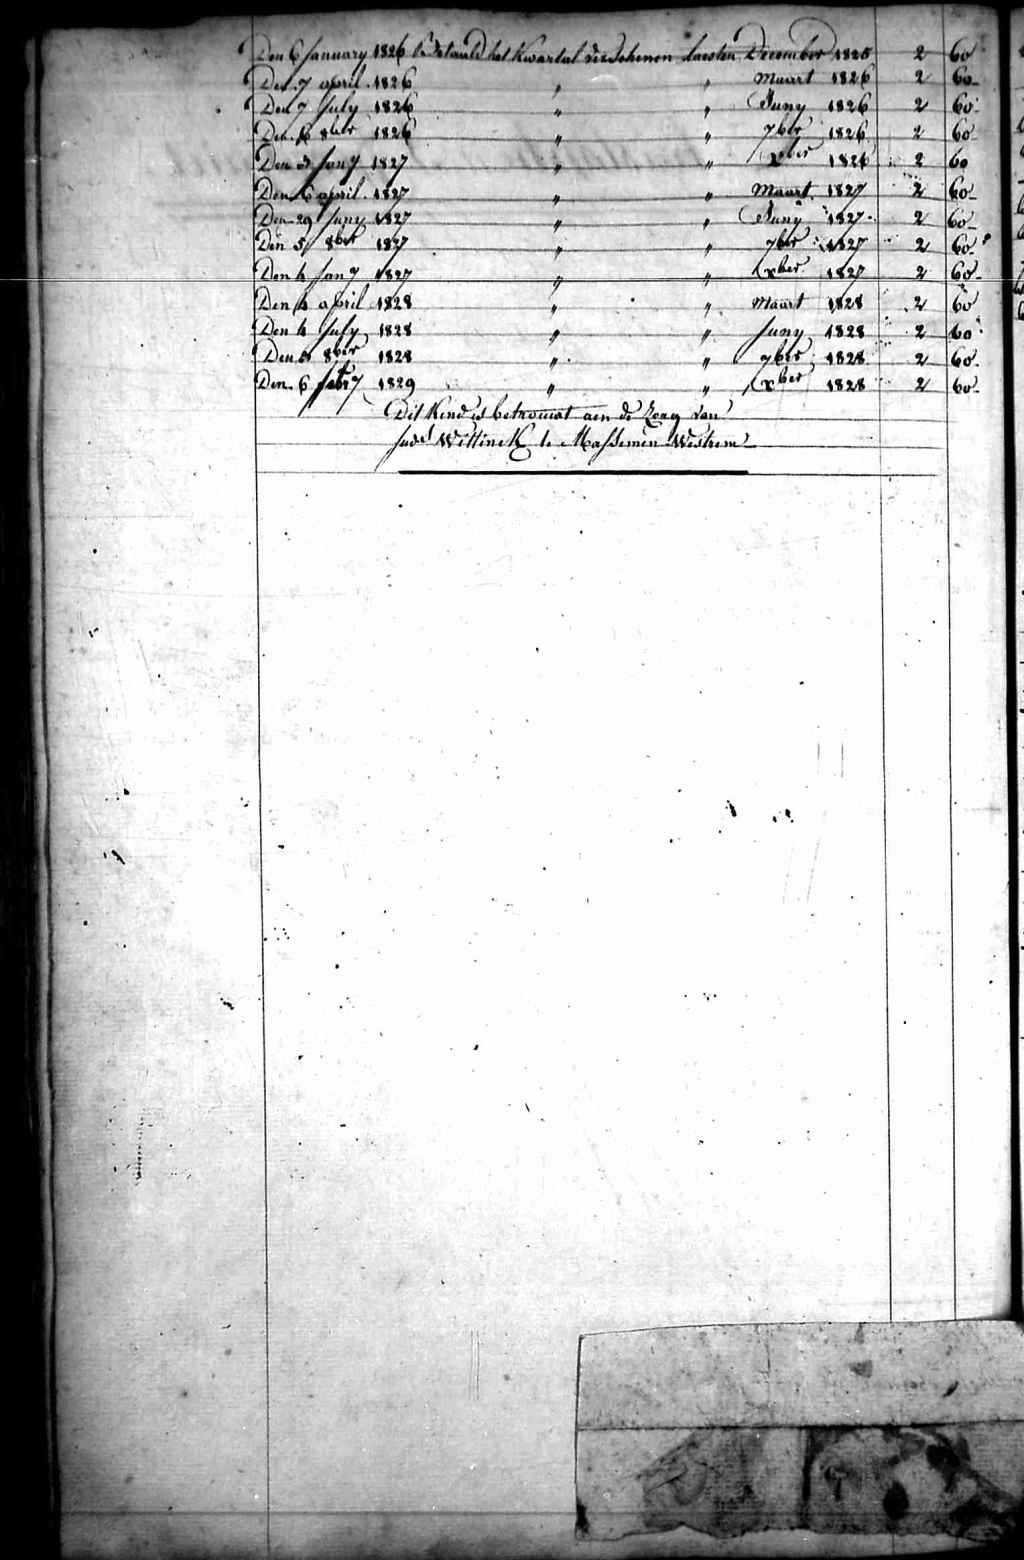 Den 6 January 1826 betaald het Kwartal verschenen laesten December 1825 2 60
Den 7 april 1826 " " Maart 1826 2 60
Den 7 July 1826 " " Juny 1826 2 60
Den 6 8ber 1826 " " 7ber 1826 2 60
Den 5 Jany 1827 " " xber 1826 2 60
Den 6 april 1827 " " Maart 1827 2 60
Den 29 Juny 1827 " " Juny 1827 2 60
Den 5 8ber 1827 " " 7ber 1827 2 60
Den 4 Jany 1827 " " xber 1827 2 60
Den 4 april 1828 " " Maart 1828 2 60
Den 4 July 1828 " " Juny 1828 2 60
Den 8ber 1828 " " 7ber 1828 2 60
Den 6 1829 " " xber 1828 2 60
Dit Kind is betrouwt aen de Zorg van
Wittinck te Massemen Westrem